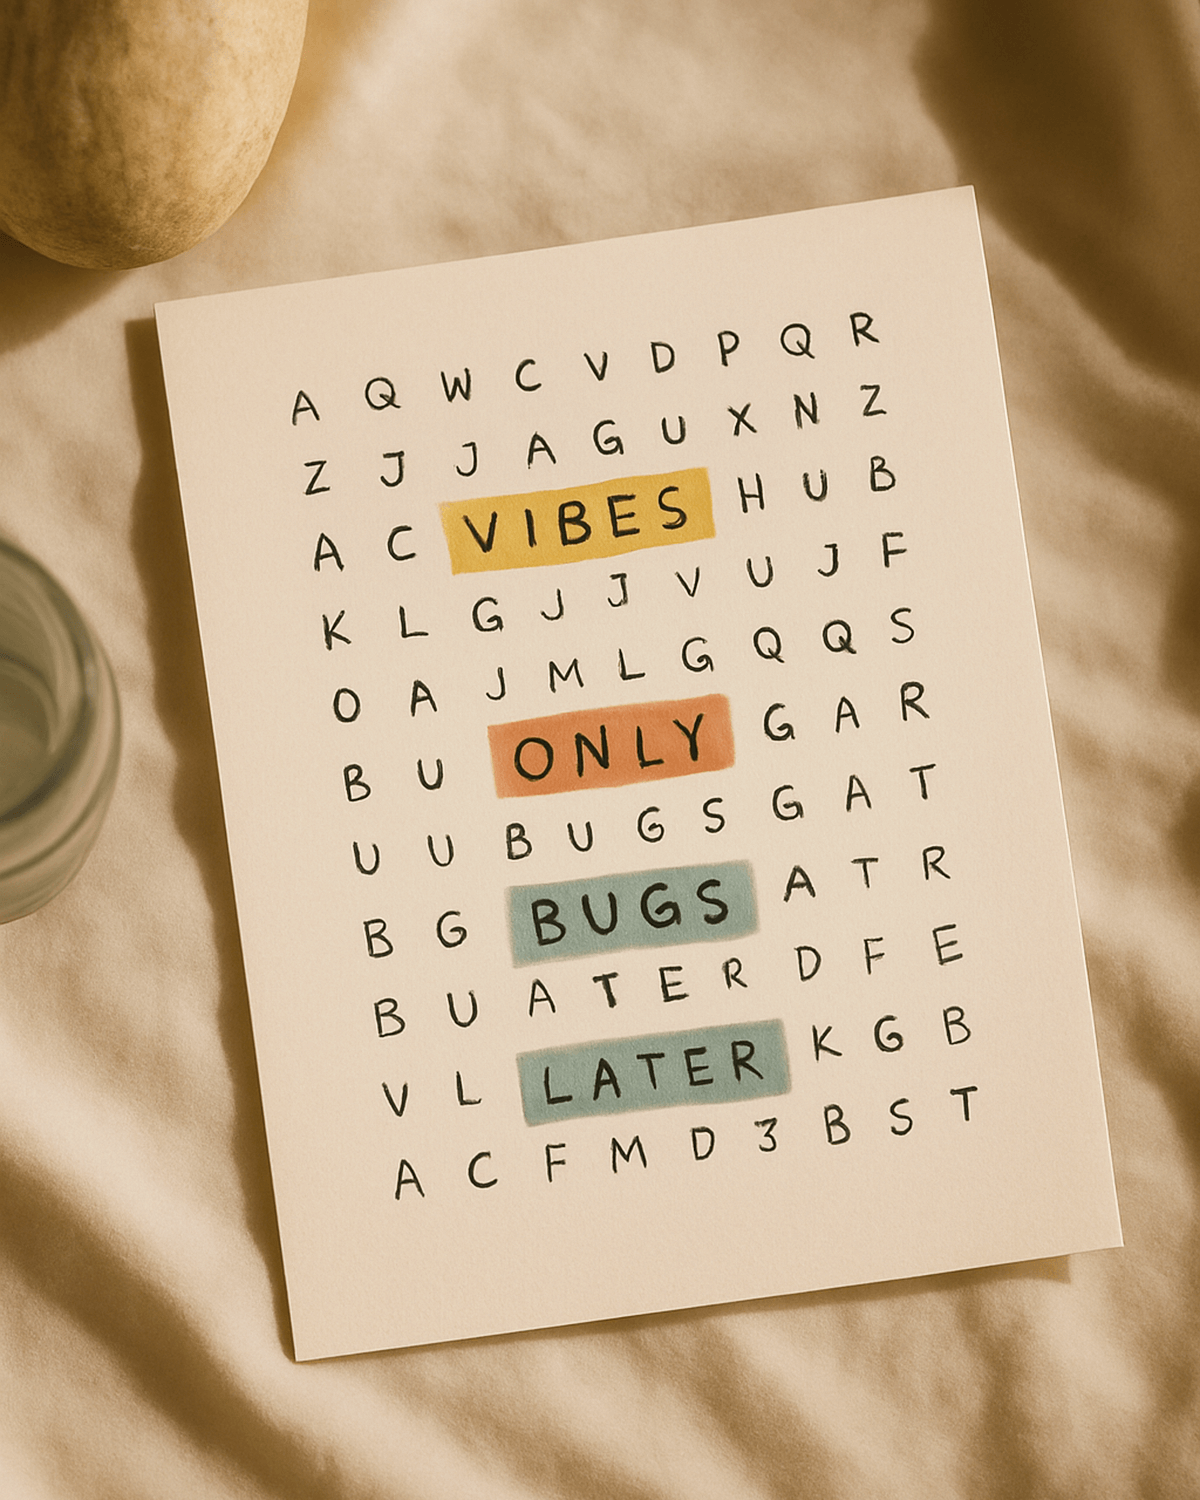 A Q W C V D P Q R
Z J J A G U X N Z
A C VIBES H U B
K L G J J V U J F
O A J M L G Q Q S
B U ONLY G A R
U U B U G S G A T
B G BUGS A T R
B U A T E R D F E
V L LATER K G B
A C F M D 3 B S T